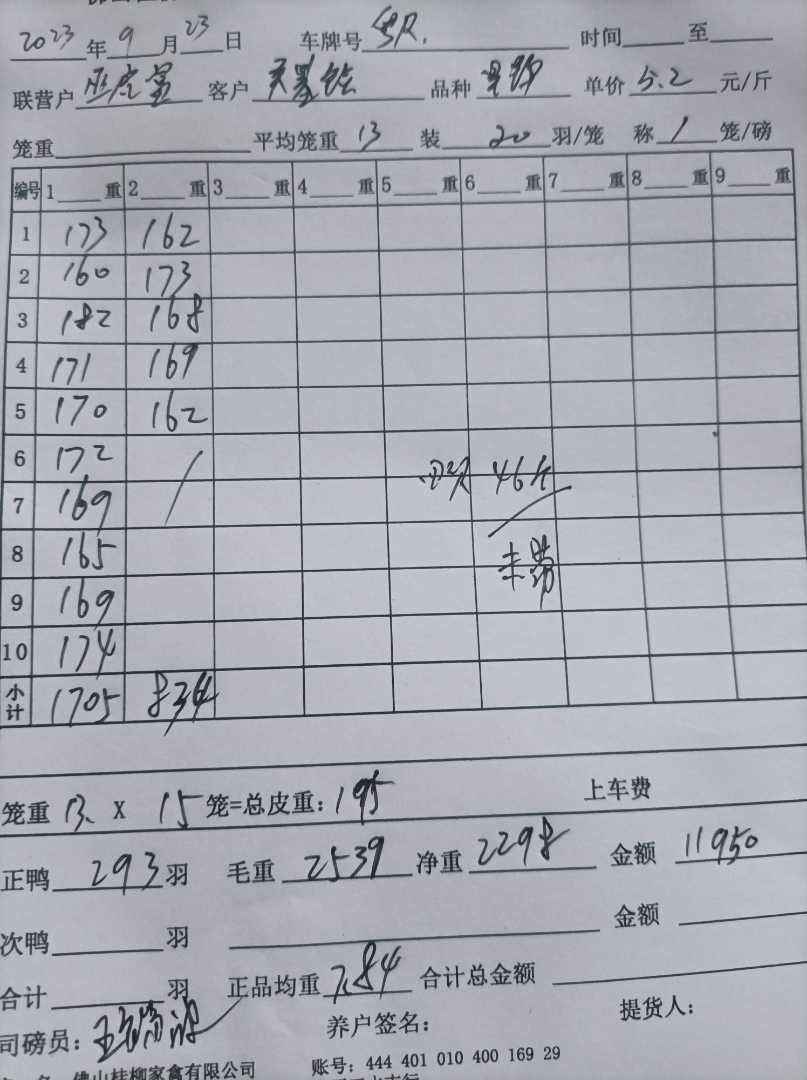 2023年9月23日 车牌号 时间 至
联营户 客户 品种 单价5.2元/斤
笼重 平均笼重13 装20羽/笼 称1笼/磅
编号 1 重 2 重 3 重 4 重 5 重 6 重 7 重 8 重 9 重
1 173 162
2 160 173
3 182 168
4 171 169
5 170 162
6 172
7 169
8 165
9 169
10 174
46斤
小计 1705 834
笼重 13. X 15 笼=总皮重: 195 上车费
正鸭 293 羽 毛重 2539 净重 2298 金额 11950
次鸭 羽 金额
合计 羽 正品均重 7.84 合计总金额
司磅员: 养户签名: 提货人:
佛山桂柳家禽有限公司 账号: 444 401 010 400 169 29